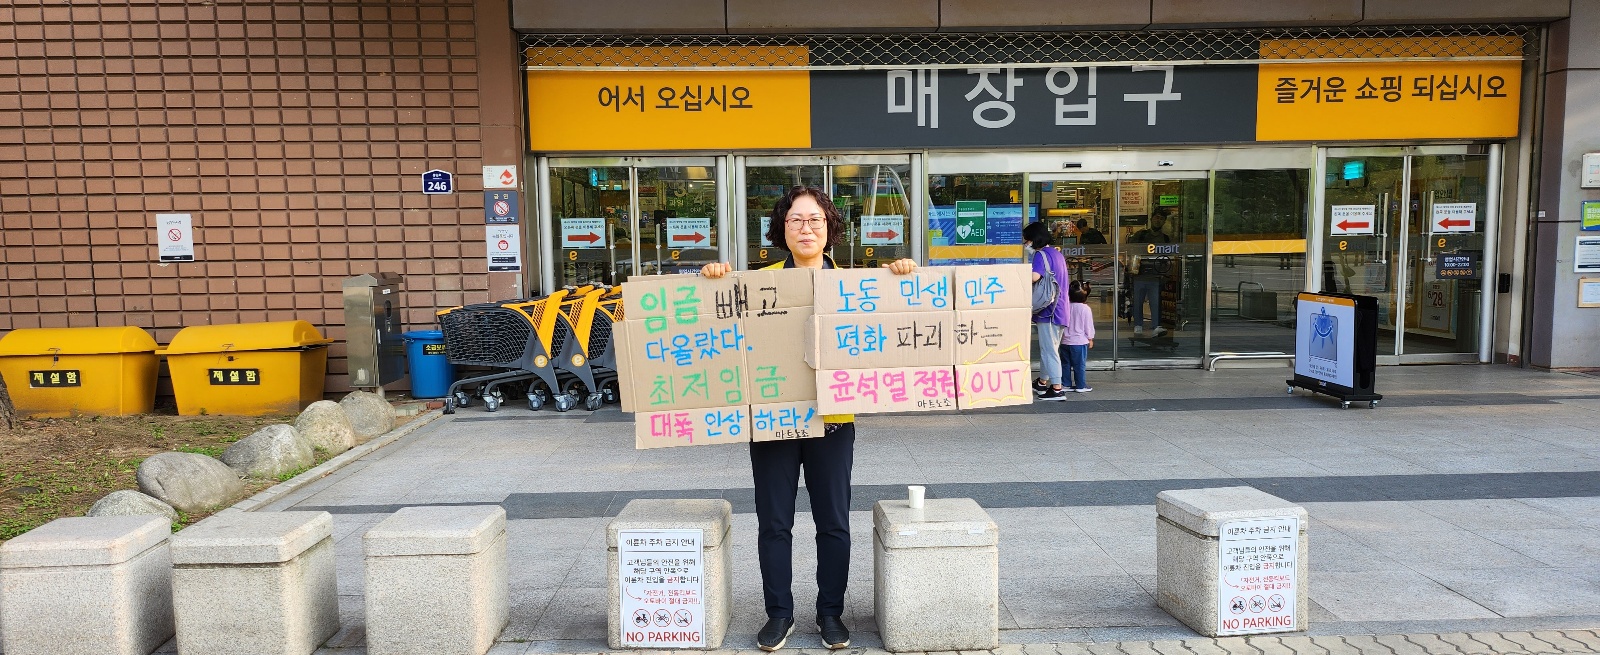 어서 오십시오
매장입구
즐거운 쇼핑 되십시오
246
AED
emart
emart
10:00~22:00
제설함
제설함
임금 빼고
다올랐다.
최저임금
대폭 인상하라!
마트노조
노동 민생 민주
평화 파괴하는
윤석열 정권 OUT
마트노조
이륜차 주차 금지 안내
고객님들의 안전을 위해
해당 구역 안쪽으로
이륜차 진입을 금지합니다
「자전거, 전동킥보드
오토바이 절대 금지!!」
NO PARKING
이륜차 주차 금지 안내
고객님들의 안전을 위해
해당 구역 안쪽으로
이륜차 진입을 금지합니다
「자전거, 전동킥보드
오토바이 절대 금지!!」
NO PARKING